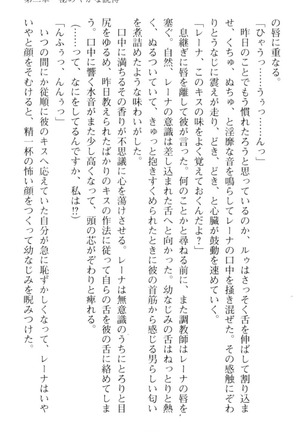 の唇に重なる。
「ひゃうっ……うぅっ……んっ」
昨日のことでもう慣れたろうと思っているのか、ルゥはさっそく舌を伸ばして割り込ま
せ、くちゅ、ぬちゅ、と淫靡な音を鳴らしてレーナの口中を掻き混ぜた。その感触にぞわ
ぞわなじに震えが走り、どき、どき、と心臓が鼓動を速めていく。
「レーナ、このキスの味をよく覚えておくんだよ？」
息継ぎに唇を離して彼が言った。何のことかと尋ねる前に、また調教師はレーナの唇を
塞ぐ。自然、レーナの意識は差し込まれた舌へと向かった。幼なじみの舌はねっとりと熱
く、ぬるついていて、きゅっと抱きすくめられたときに彼の首筋から感じる男らしい匂い
を煮詰めたような味わいがした。
口中に満ちるその香りが不思議に心を蕩けさせる。レーナは無意識のうちにとろりと目
尻をゆるめ、昨日教えられたばかりのキスの作法に従って自らの舌を彼の舌に絡めてしま
う。口中に響く水音がまた少し高くなって、頭の芯がぞわりと痺れる。
（って、なにをしてるんですか、私は!?）
「んふぅっ、んんぅっ」
いつの間にか従順に彼のキスへ応えていた自分が急に恥ずかしくなって、レーナはいや
いやと顔をそむけると、精一杯の怖い顔をつくって幼なじみを睨みつけた。